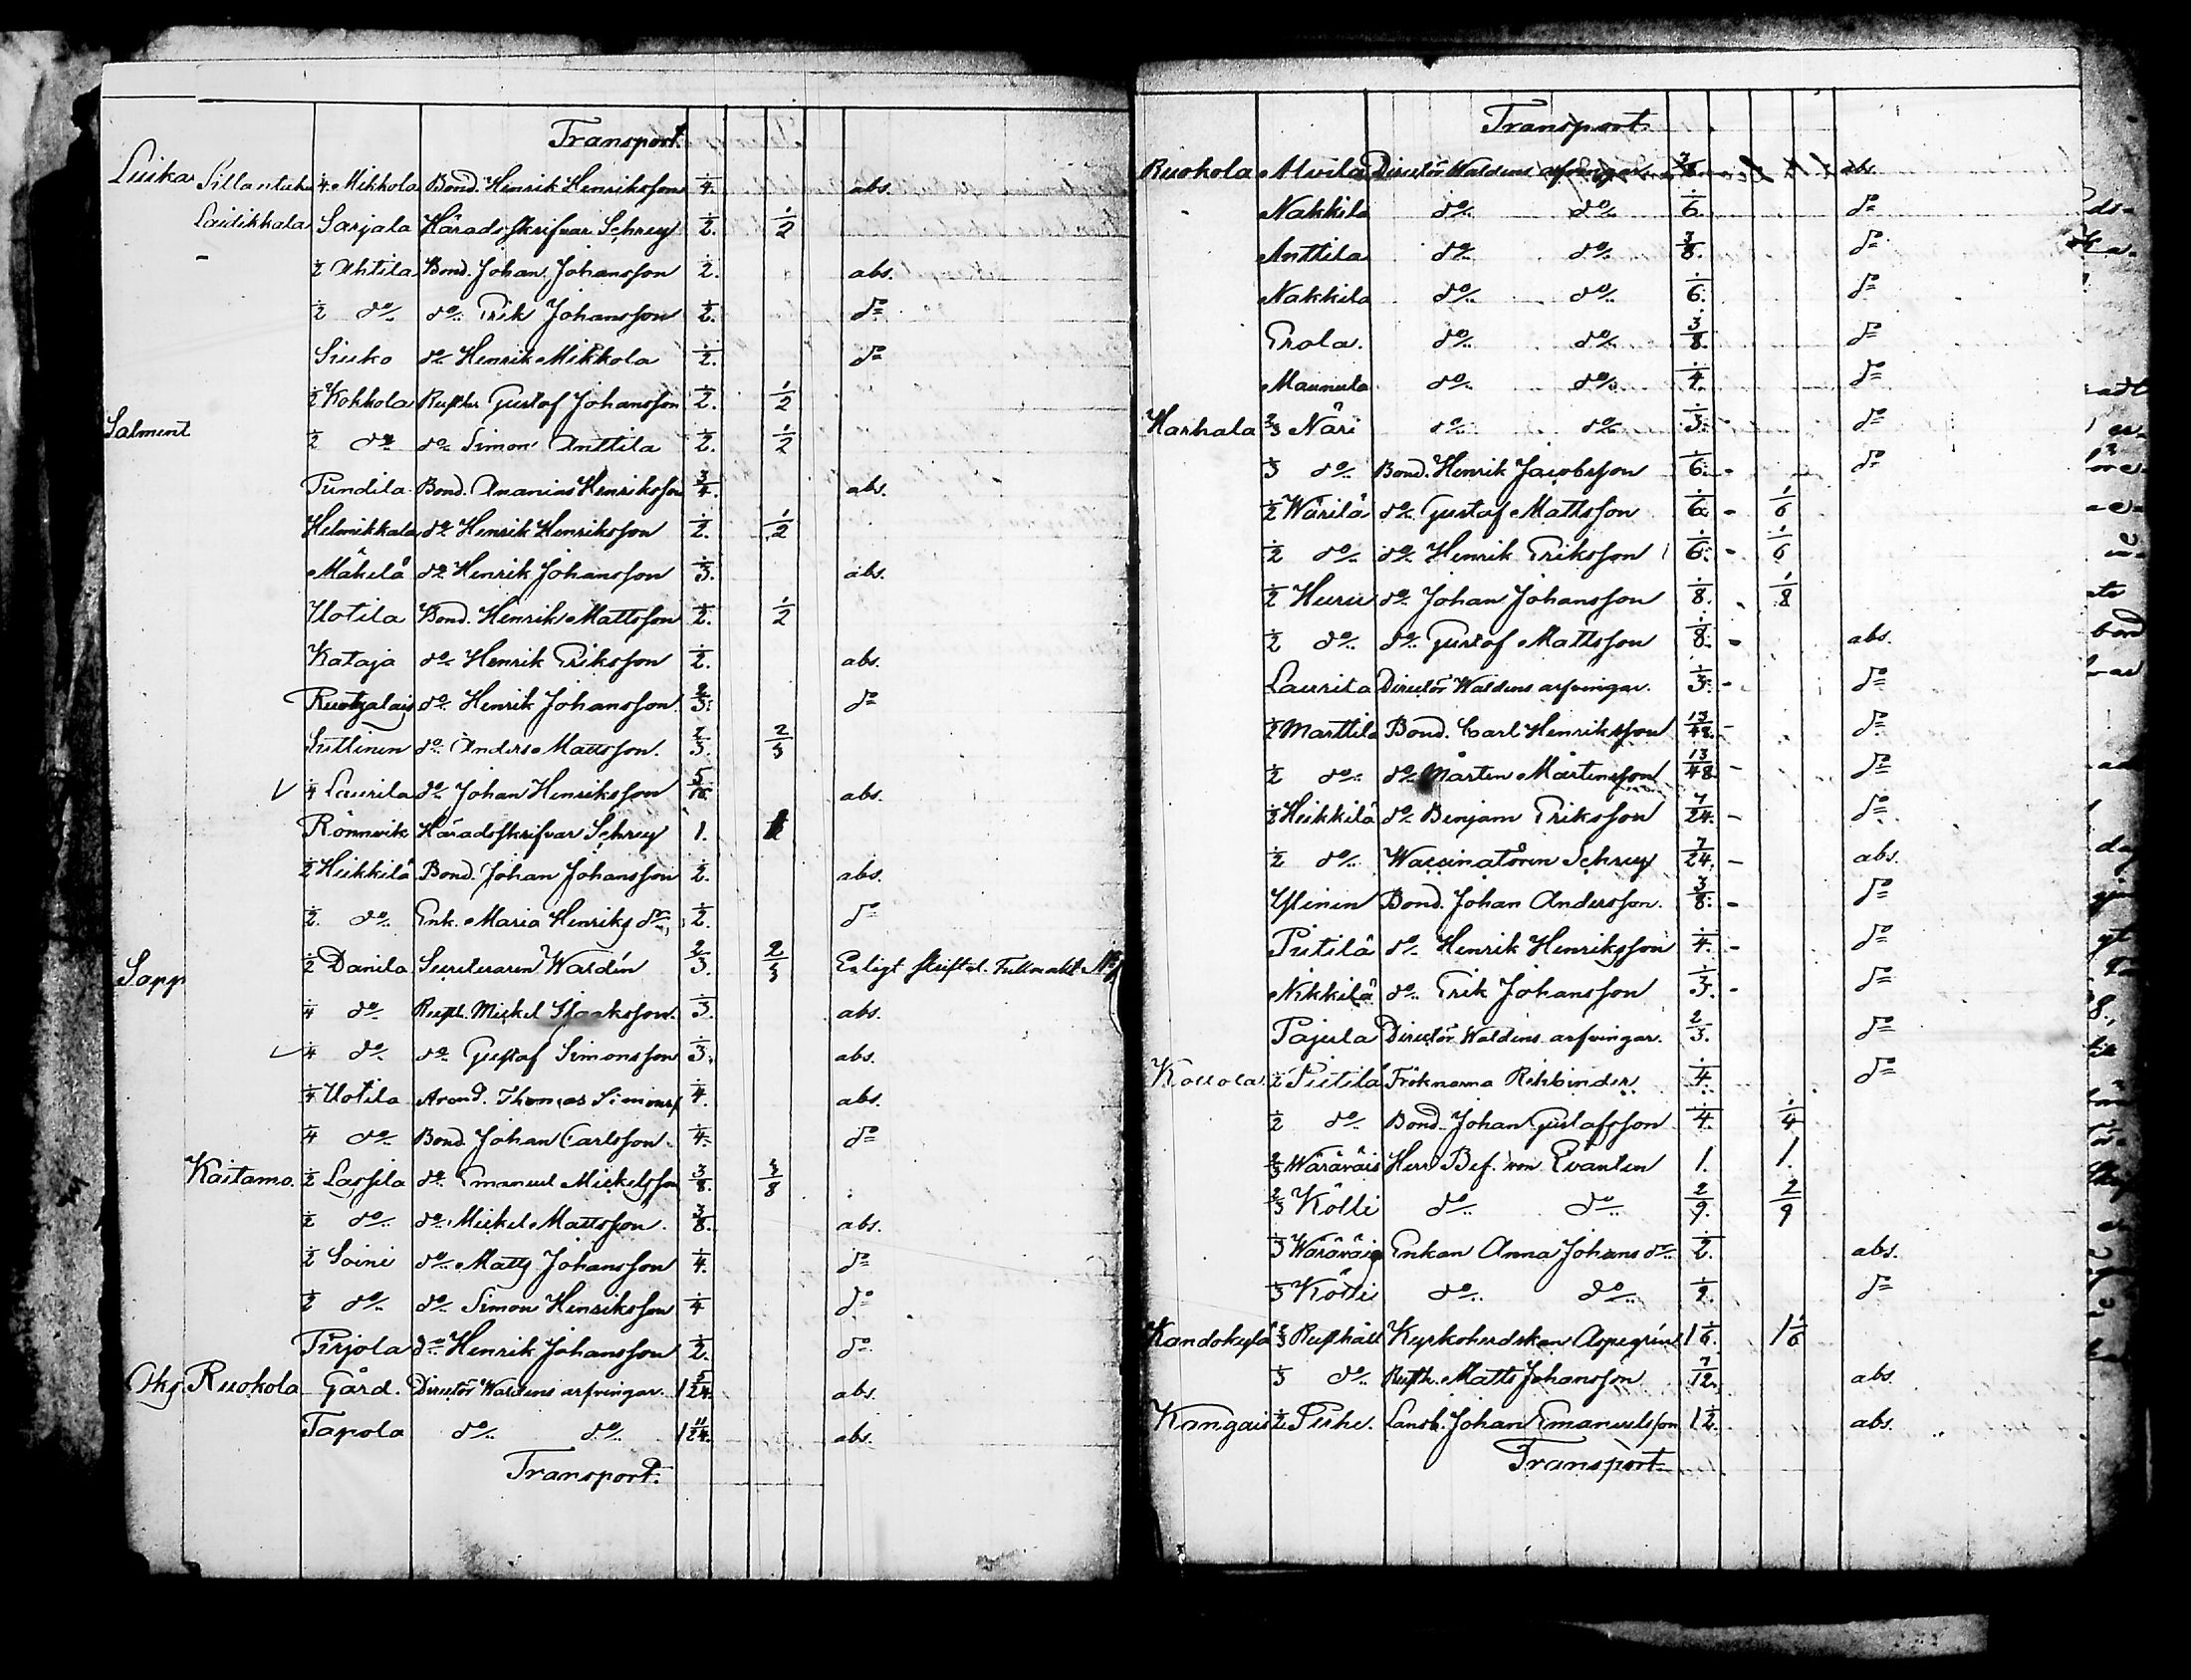 Transport
Luika Sillantaka ¼ Mikkola Bond. Henrik Henriksson ¼ abs.
Laitikkala Sarjala Häradsskrifvar Schrey ½ ½
½ Ahtila Bond. Johan Johansson ½ abs.
½ do do Erik Johansson ½ do
Siuko do Henrik Mikkola ½ do
½ Kokkola Rusth. Gustaf Johansson ½ ½
Salment ½ do do Simon Anttila ½ ½
Pundila Bond. Ananias Henriksson ¾ abs.
Helmikkala do Henrik Henriksson ½ ½
Mäkelä do Henrik Johansson ⅓ abs.
Uotila Bond. Henrik Mattsson ½ ½
Kataja do Henrik Eriksson ½ abs.
Ruotzalais do Henrik Johansson ⅔ do
Suttinen do Anders Mattsson ⅔ ⅔
✓ ¼ Laurila do Johan Henriksson 5/16 abs.
Rönnvik Häradsskrifvar Schrey 1. 1
½ Heikkilä Bond. Johan Johansson ½ abs.
½ do Enk. Maria Henriks dr ½ do
Sapp ½ Danila Secreteraren Waldén ⅔ ⅔ Enligt skriftel. Fullmakt
¼ do Rusth. Mickel Isaaksson ⅓ abs.
✓ ¼ do do Gustaf Simonsson ⅓ abs.
¼ Uotila Arend. Thomas Simonss ¼ abs.
¼ do Bond Johan Carlsson ¼ do
Kaitamo. ½ Lassila do Emanuel Mickelsson ⅜ ⅜
½ do do Mickel Mattsson ⅜ abs.
½ Soini do Matts Johansson ¼ do
½ do do Simon Henriksson ¼ do
Pirjola do Henrik Johansson ½ do
Okg. Ruokola Gård. Directör Waldens arfvingar. 1 5/24 abs.
Tapola do do 1 11/24 abs.
Transport.
Transport
Ruokola Alvila Directör Waldens arfvingar abs.
Nakkila do do 1/6 do
Anttila do do ⅜ do
Nakkila do do 1/6 do
Erola. do do ⅜ do
Maunula do do ¼ do
Harhala ⅔ Näri do do ⅓ do
⅓ do Bond. Henrik Jacobsson 1/6 do
½ Wärilä do Gustaf Mattsson 1/6 1/6
½ do do Henrik Eriksson 1/6 1/6
½ Huru do Johan Johansson ⅛ ⅛
½ do do Gustaf Mattsson ⅛ abs.
Laurila Directör Waldens arfvingar. ⅓ do
½ Marttila Bond. Carl Henriksson 13/48 do
½ do do Mårten Mårtensson 13/48 do
½ Heikkilä do Benjam Eriksson 7/24 do
½ do Waccinatören Schrey 7/24 abs.
Ylinen Bond. Johan Andersson. ⅜ do
Pietilä do Henrik Henriksson ¼ do
Nikkilä do Erik Johansson ⅓ do
Pajula Directör Waldens arfvingar. ⅔ do
Kokkola ½ Pietilä Fröknarna Rehbinder ¼ do
½ do Bond. Johan Gustafsson ¼ ¼
⅔ Wäräväis Herr Bef. von Qvanten 1. 1.
⅔ Kölli do do 2/9 2/9
⅓ Wäräväis Enkan Anna Johans dr ½ abs.
⅓ Kölli do do 1/9 do
Kandokylä ⅔ Rusthåll Kyrkoherdskan Aspegrén 1 1/6 1 1/6
⅓ do Rusth. Matts Johansson 7/12 abs.
Kangais ½ Pirhe. Lansb. Johan Emanuelsson 1 ½ abs.
Transport